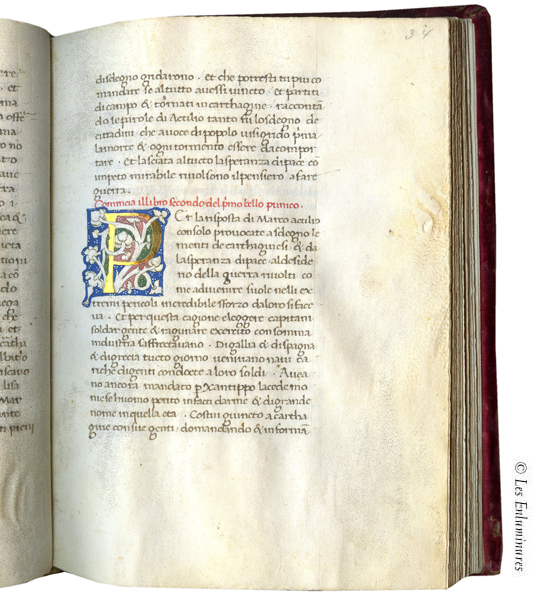 34
disdegno gridarono . et che potresti tu piu co
mandare se al tutto avessi vincto . et partiti
di campo & tornati in carthagine . racconta
do le parole di Actilio tanto fu lo sdegno de
cittadini che a voce di popolo vi si grido p̃ma
la morte & ogni tormento essere da compor
tare . Et lasciata al tucto la speranza di pace cõ
impeto mirabile rivolsono il pensiero a fare
guerra .
Comincia il libro secondo del p̃mo bello punico .
PEr la risposta di Marco actilio
consolo provocate a sdegno le
menti de carthaginesi & da
la speranza di pace al deside
rio della guerra rivolti co
me advenire suole nelli ex
tremi pericoli incredibile sforzo da loro si face
va . Et per questa cagione eleggere capitani
soldar gente & ragunare exercito con somma
industria s affrectavano . Di gallia & di spagna
& di grecia tucto giorno venivano navi ca
riche di genti condocte a loro soldi . Avea
no ancora mandato p Xantippo lacedemo
niese huomo perito in facti d arme & di grande
nome in quella eta . Costui giuncto a cartha
gine con sue genti . domandando & informã
© Les Enluminures